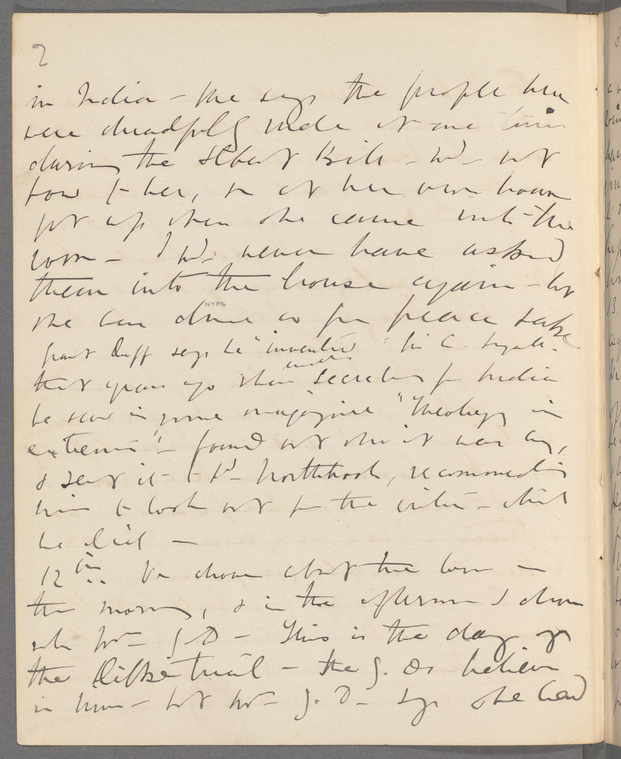 2
in India - she says the people here
were dreadfully rude at one time
during the Ilbert Bill - wd. not
bow to her, or at her own house
get up when she came into the
room - I wd. never have asked
them into the house again - but
she has done so for peace sake
NYPL
Grant Duff says he "invented" Sir A. Lyall.
that years ago when under Secretary for India
he saw in some magazine "Theology in
extremis" - found out who it was by,
& sent it to Ld. Northbrook, recommending
him to look out for the writer - which
he did -
12th. We drove about the town in
the morning, & in the afternoon I drove
with Mrs. G. D - This is the day of
the Dilke trial - the G. Ds believe
in him - but Mrs. G. D - says she had